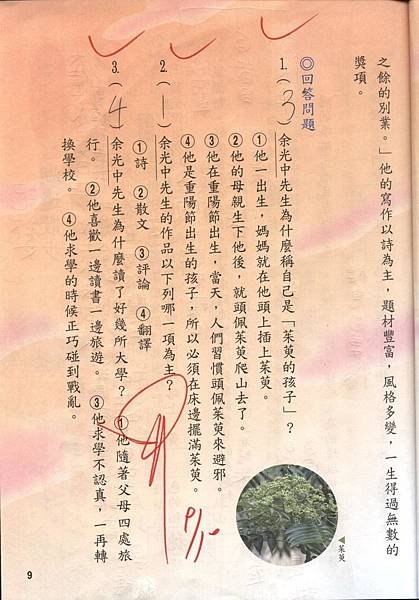 之餘的別業。」他的寫作以詩為主，題材豐富，風格多變，一生得過無數的
獎項。
◎回答問題
1.（3）余光中先生為什麼稱自己是「茱萸的孩子」？
①他一出生，媽媽就在他頭上插上茱萸。
②他的母親生下他後，就頭佩茱萸爬山去了。
③他在重陽節出生，當天，人們習慣頭佩茱萸來避邪。
④他是重陽節出生的孩子，所以必須在床邊擺滿茱萸。
2.（1）余光中先生的作品以下列哪一項為主？
①詩 ②散文 ③評論 ④翻譯
3.（4）余光中先生為什麼讀了好幾所大學？ ①他隨著父母四處旅
行。 ②他喜歡一邊讀書一邊旅遊。 ③他求學不認真，一再轉
換學校。 ④他求學的時候正巧碰到戰亂。
茱萸
9